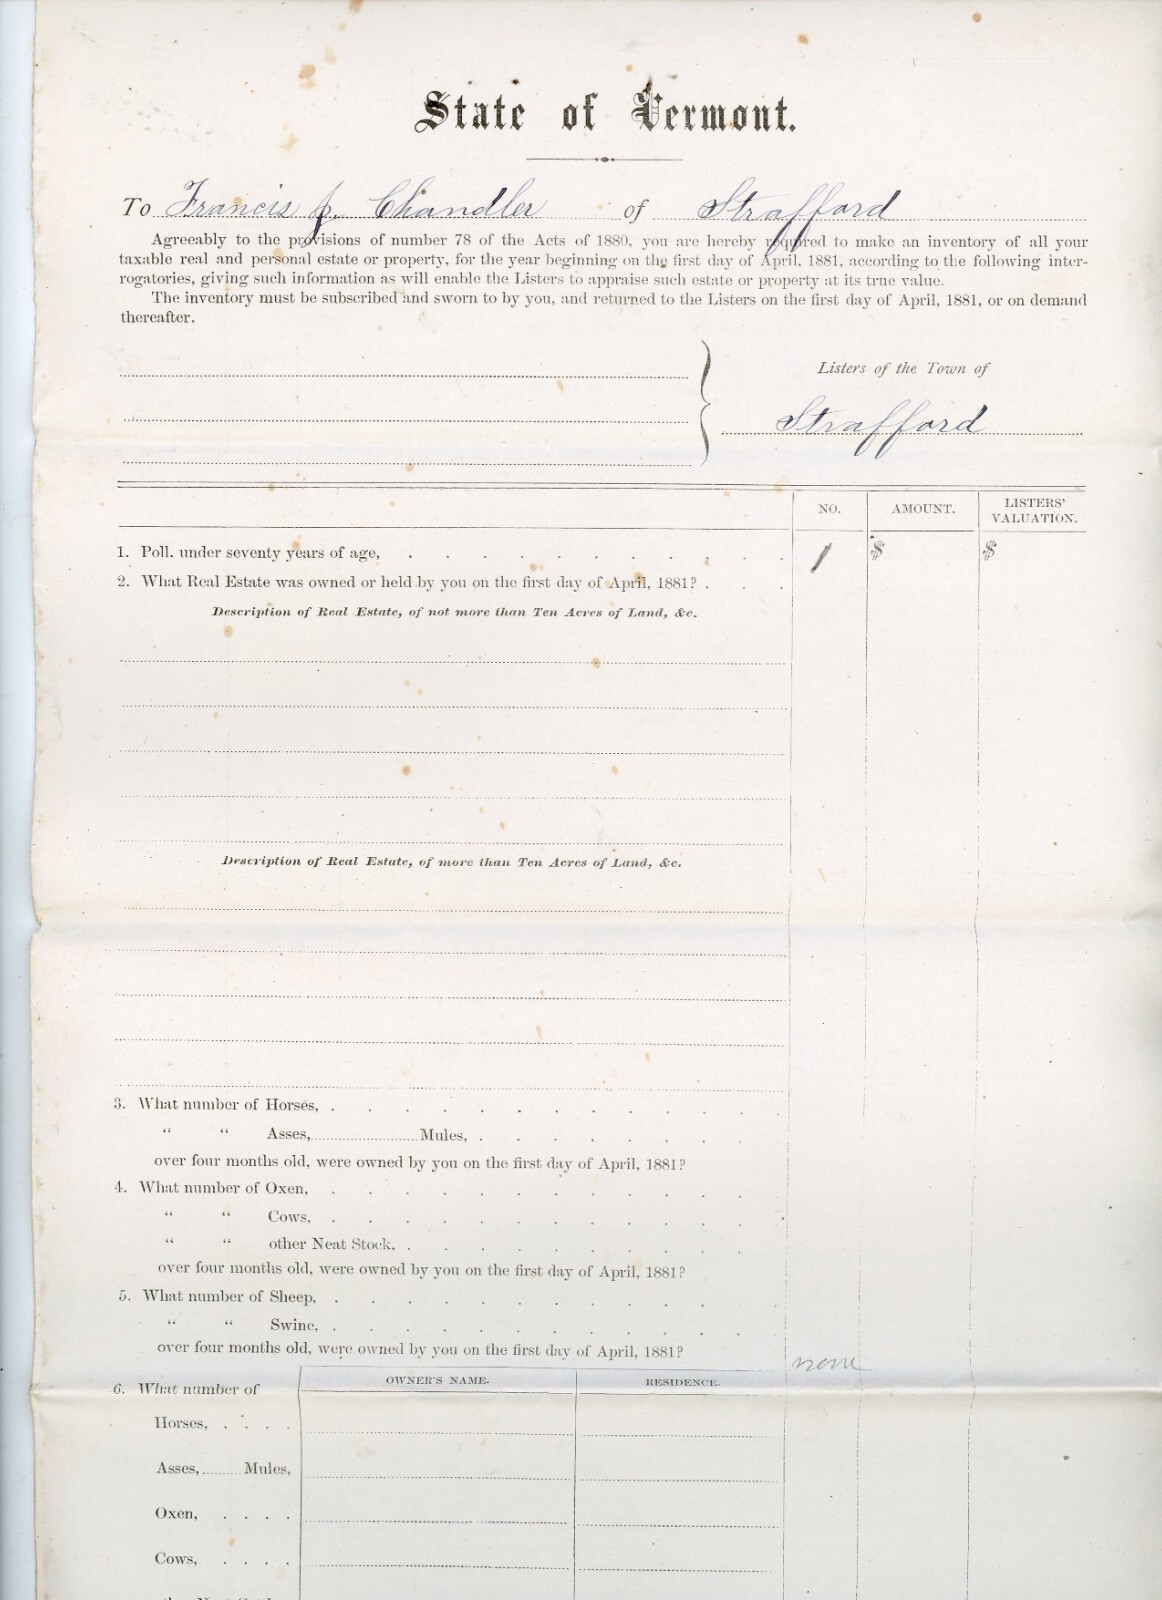 State of Vermont.
To Francis J. Chandler of Strafford
Agreeably to the provisions of number 78 of the Acts of 1880, you are hereby required to make an inventory of all your
taxable real and personal estate or property, for the year beginning on the first day of April, 1881, according to the following inter-
rogatories, giving such information as will enable the Listers to appraise such estate or property at its true value.
The inventory must be subscribed and sworn to by you, and returned to the Listers on the first day of April, 1881, or on demand
thereafter.
Listers of the Town of
Strafford
NO. AMOUNT. LISTERS' VALUATION.
1. Poll, under seventy years of age, 1 $ $
2. What Real Estate was owned or held by you on the first day of April, 1881?
Description of Real Estate, of not more than Ten Acres of Land, &c.
Description of Real Estate, of more than Ten Acres of Land, &c.
3. What number of Horses,
" " Asses, Mules,
over four months old, were owned by you on the first day of April, 1881?
4. What number of Oxen,
" " Cows,
" " other Neat Stock,
over four months old, were owned by you on the first day of April, 1881?
5. What number of Sheep,
" " Swine,
over four months old, were owned by you on the first day of April, 1881?
none
6. What number of OWNER'S NAME. RESIDENCE.
Horses,
Asses, Mules,
Oxen,
Cows,